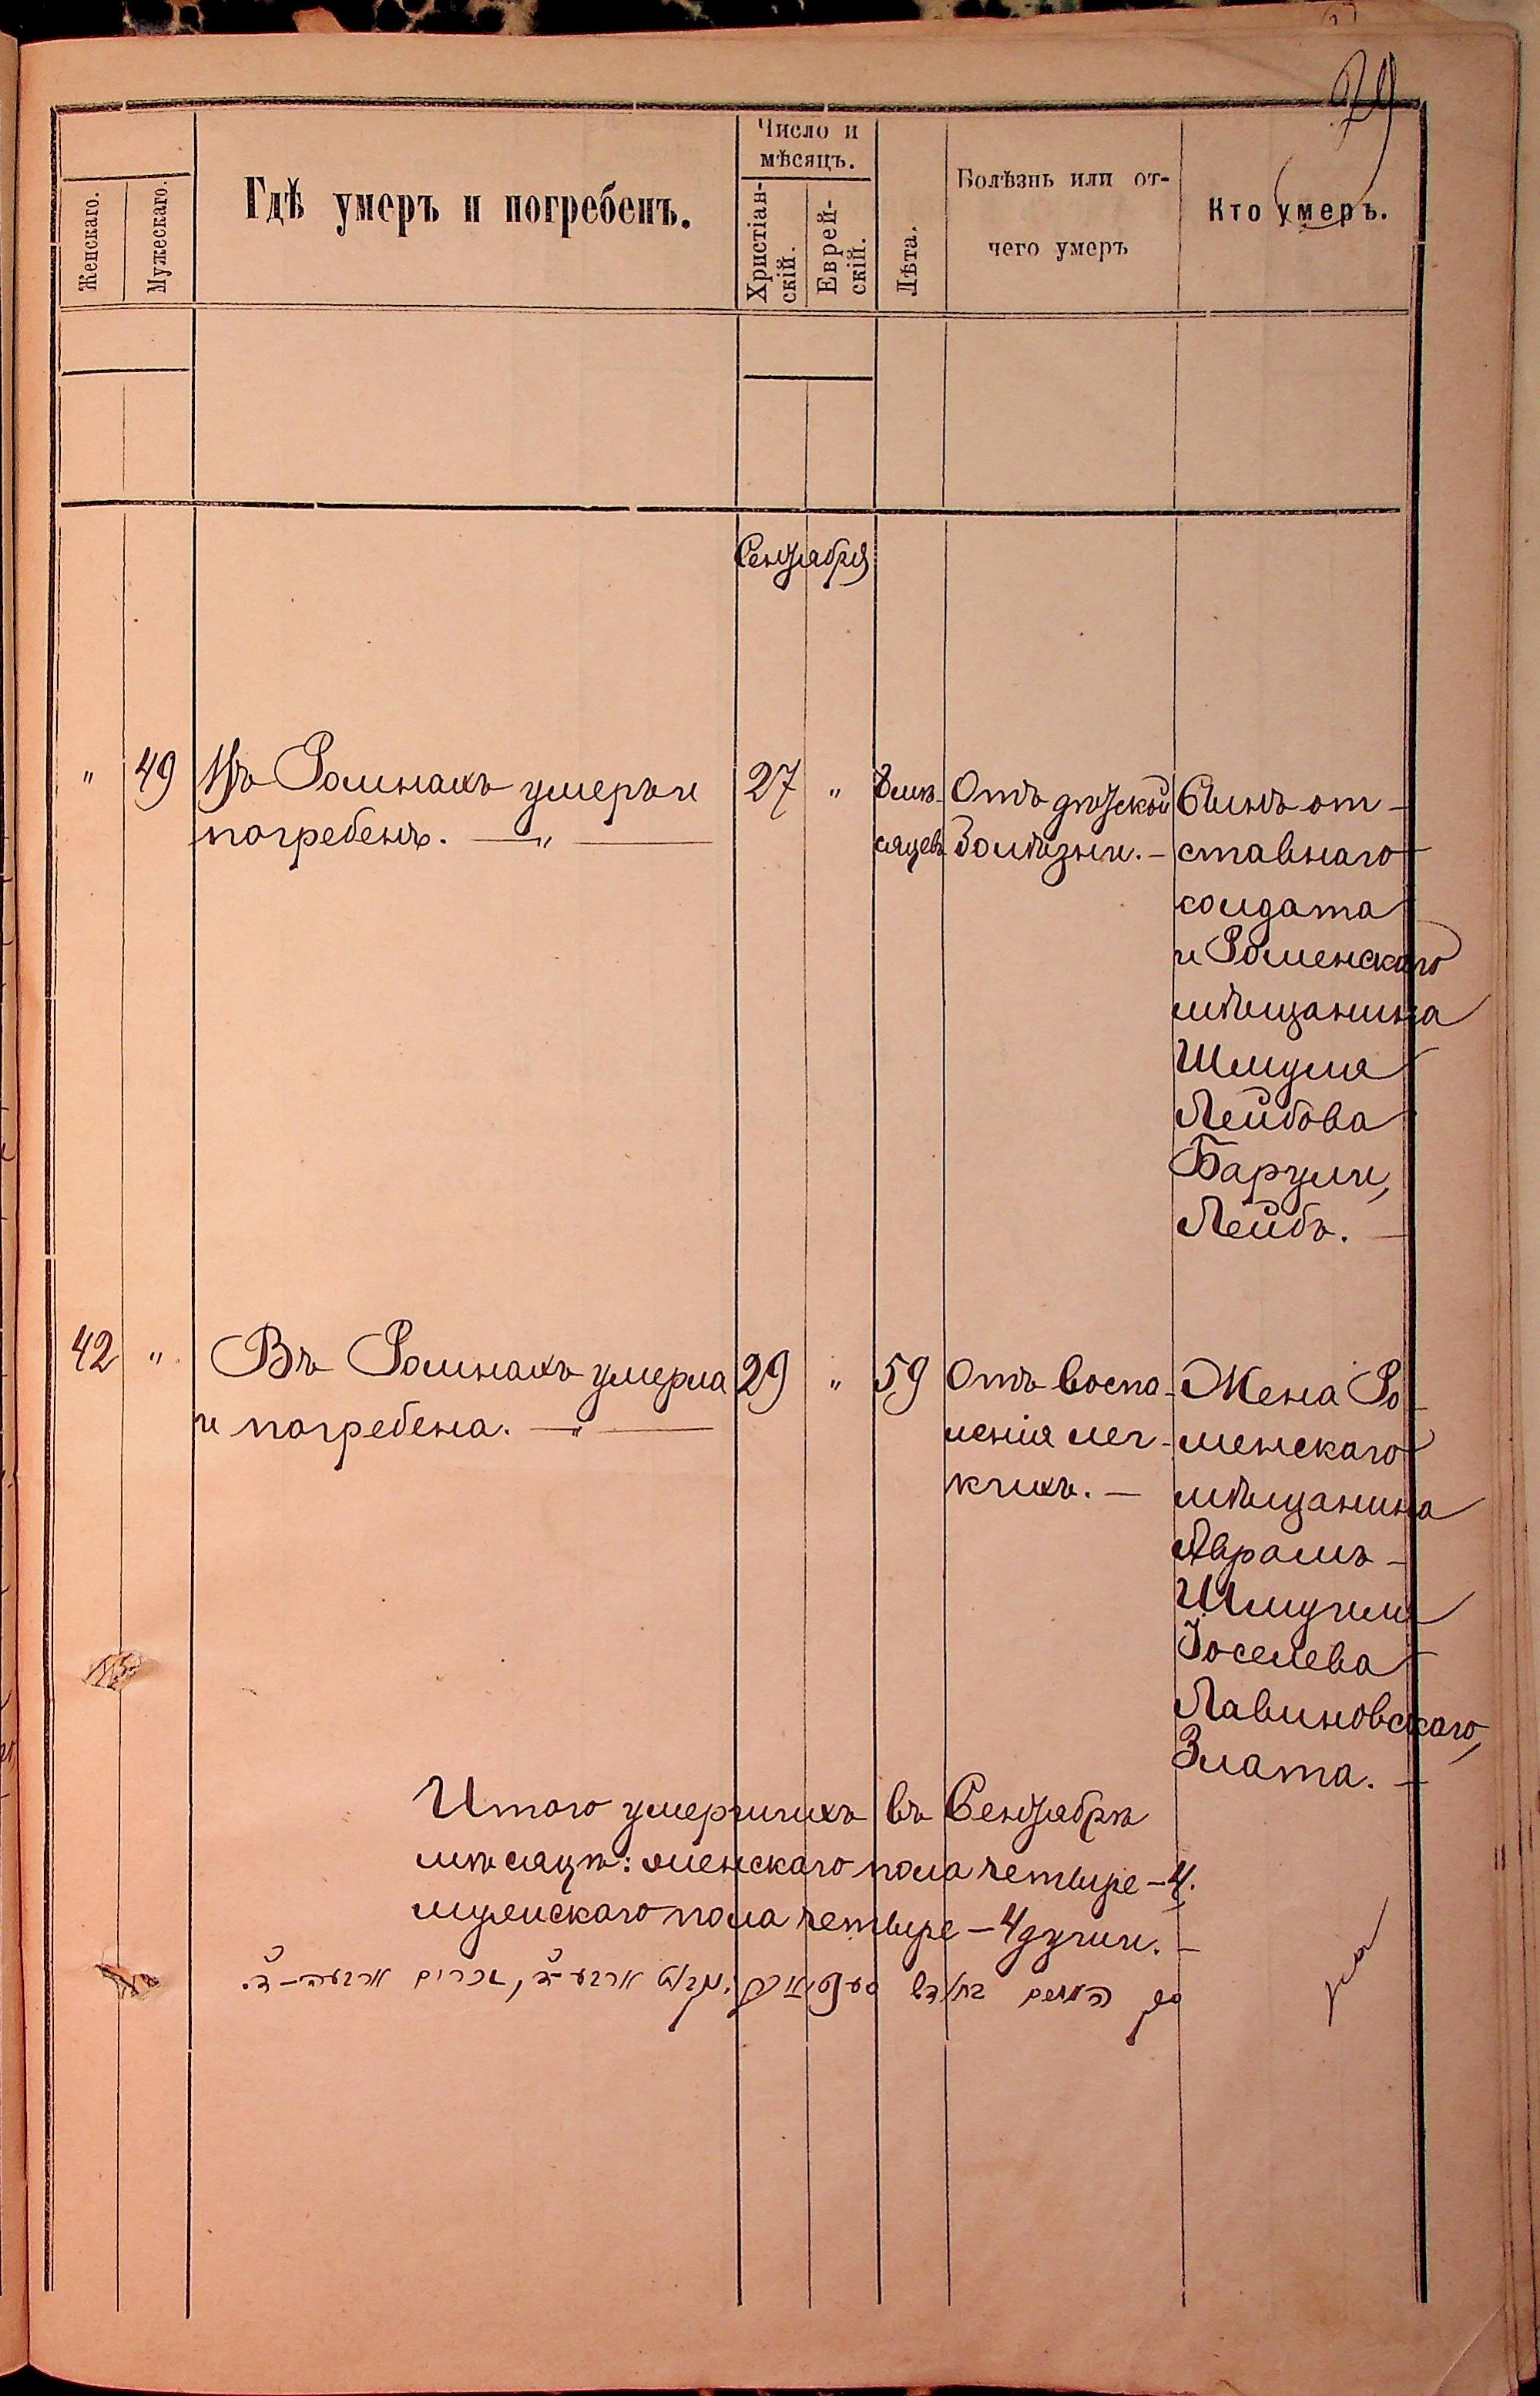 29
Женскаго.
Мужескаго.
Гдѣ умеръ и погребенъ.
Число и
мѣсяцъ.
Христіан-
скій.
Еврей-
скій.
Лѣта.
Болѣзнь или от-
чего умеръ
Кто умеръ.
Сентября
" 49 Въ Ромнахъ умеръ и
погребенъ. — " —
27 "
8 мѣ-
сяцевъ
Отъ дѣтской
болѣзни. —
Сынъ от-
ставнаго
солдата
и Роменскаго
мѣщанина
Шмуля
Лейбова
Барули,
Лейбъ. —
42 " Въ Ромнахъ умерла
и погребена. — " —
29 " 59
Отъ воспа-
ленія лег-
кихъ. —
Жена Ро-
менскаго
мѣщанина
Аврамъ-
Шмуиля
Іоселева
Лавиновскаго,
Злата. —
Итого умершихъ въ Сентябрѣ
мѣсяцѣ: женскаго пола четыре — 4.
мужскаго пола четыре — 4 души. —